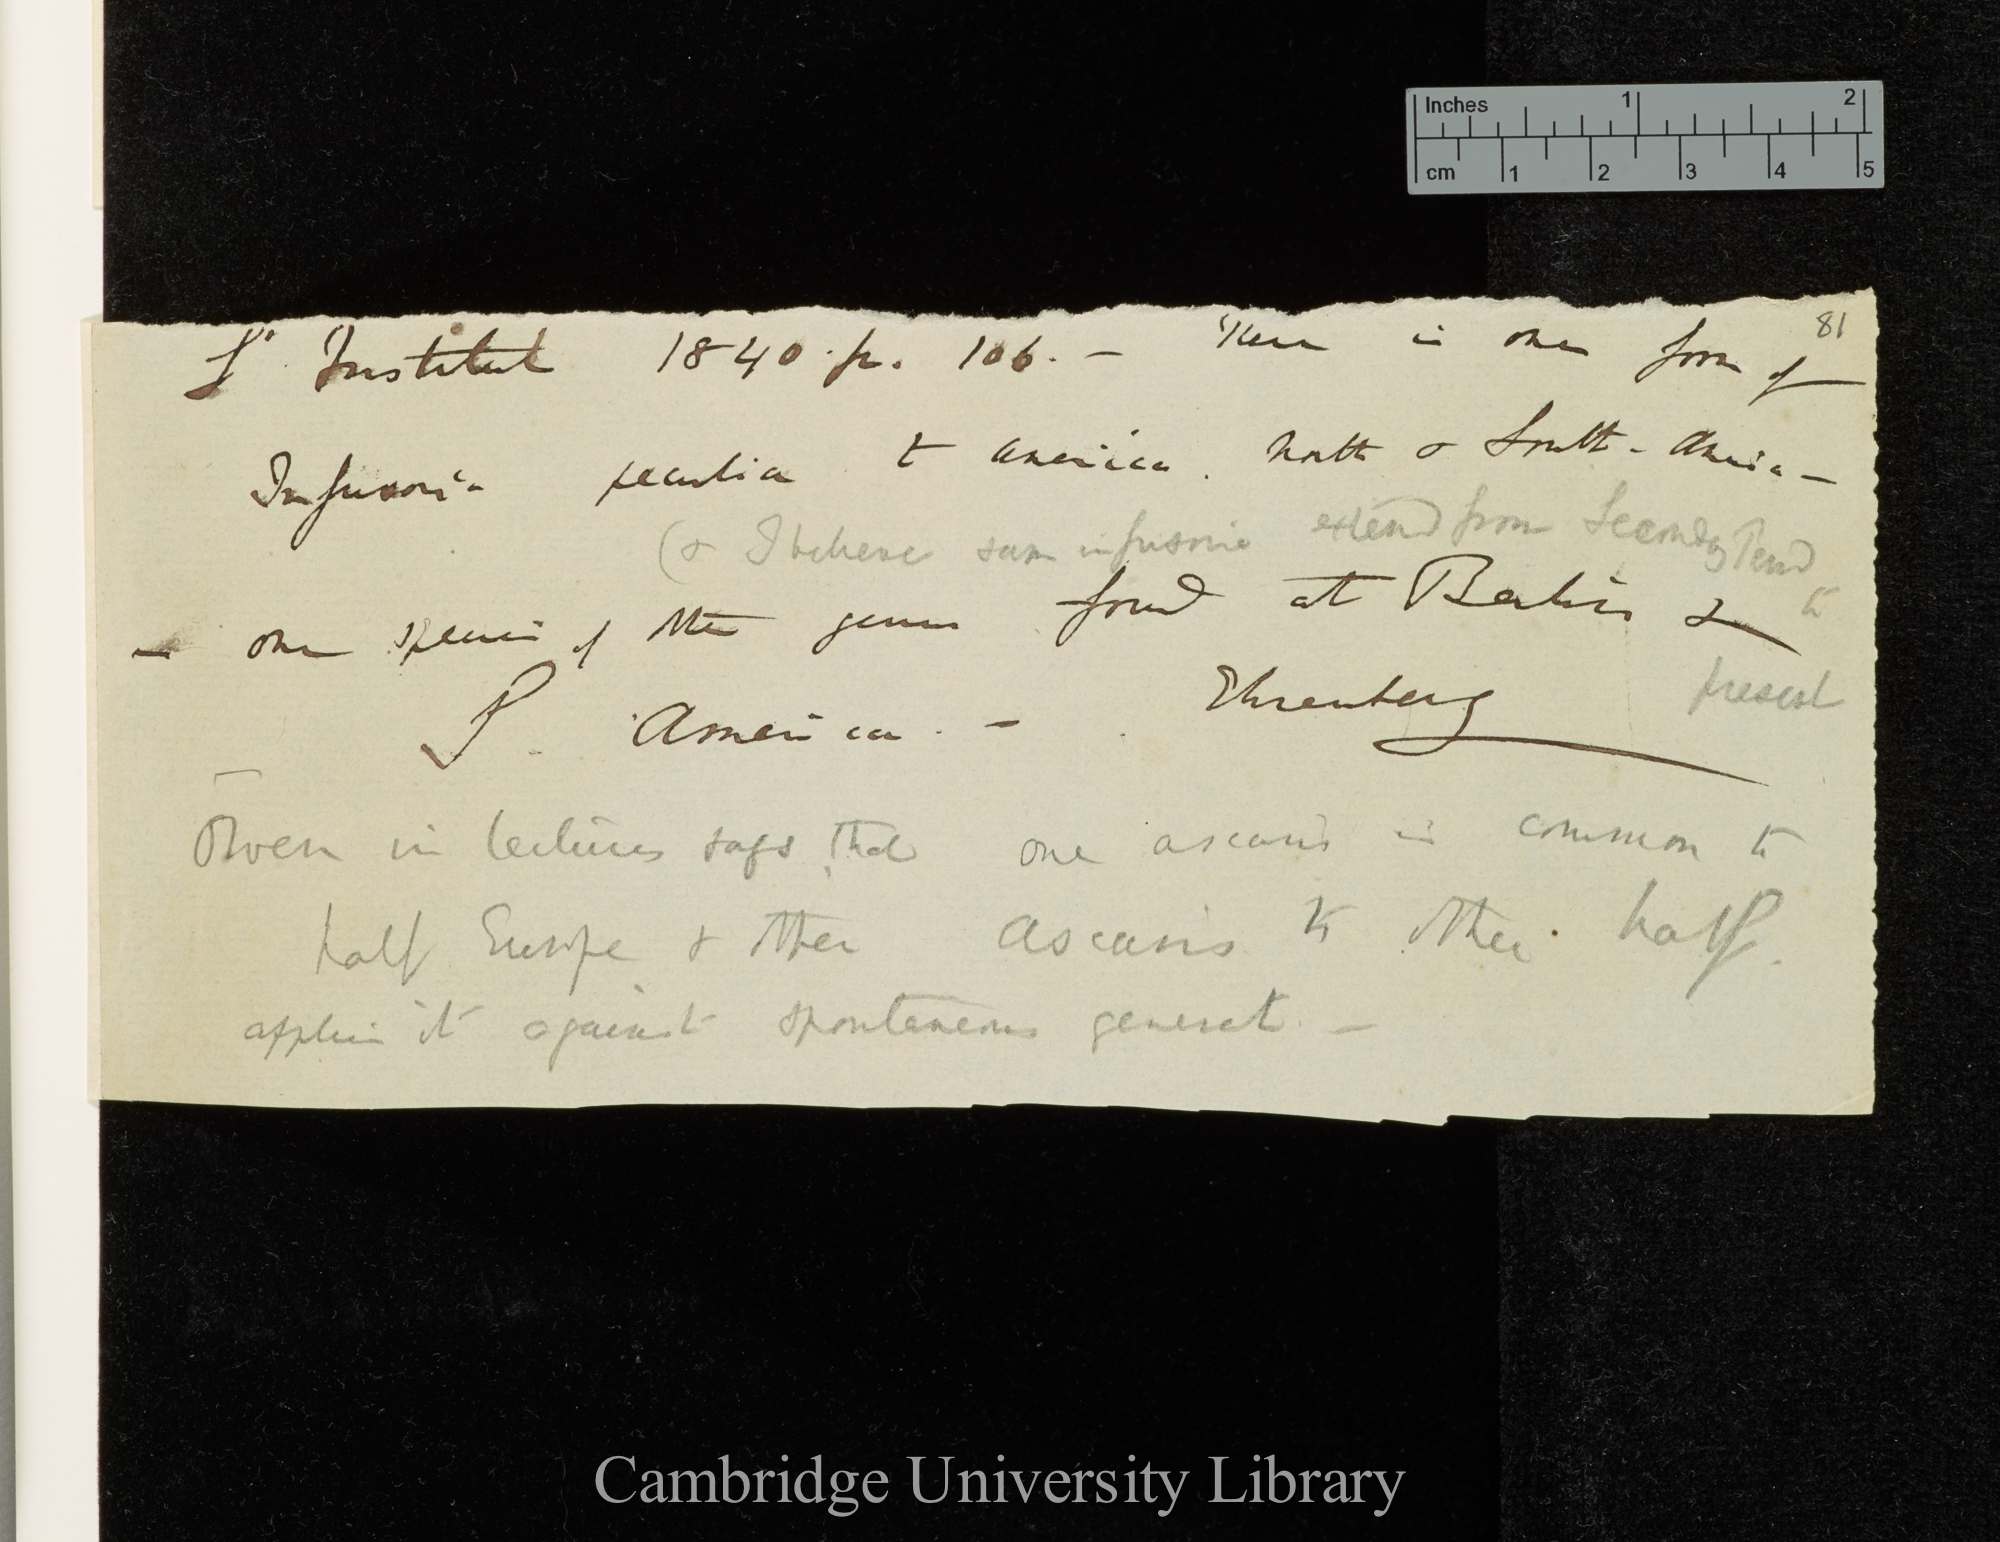 Inches 1 2
cm 1 2 3 4 5
81
L'Institut 1840. p. 106. — There is one form of
Infusoria peculiar to America. North & South-America —
(& I believe some infusoria extend from Secondy Period to present
— one species of this genus found at Berlin &
S. America. — Ehrenberg
Owen in lectures says that one ascaris is common to
half Europe & other Ascaris to other half.
applies it against spontaneous generat. —
Cambridge University Library